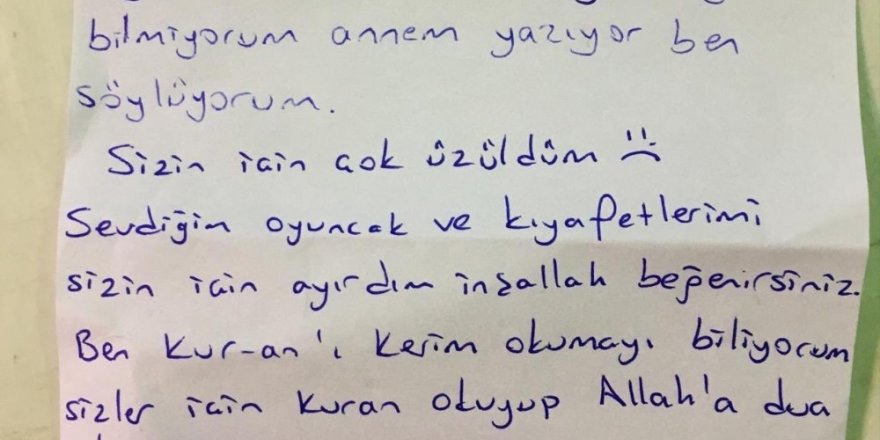 bilmiyorum annem yazıyor ben
söylüyorum.
Sizin için çok üzüldüm :(
Sevdiğim oyuncak ve kıyafetlerimi
sizin için ayırdım inşallah beğenirsiniz.
Ben Kur-an'ı Kerim okumayı biliyorum
sizler için Kuran okuyup Allah'a dua